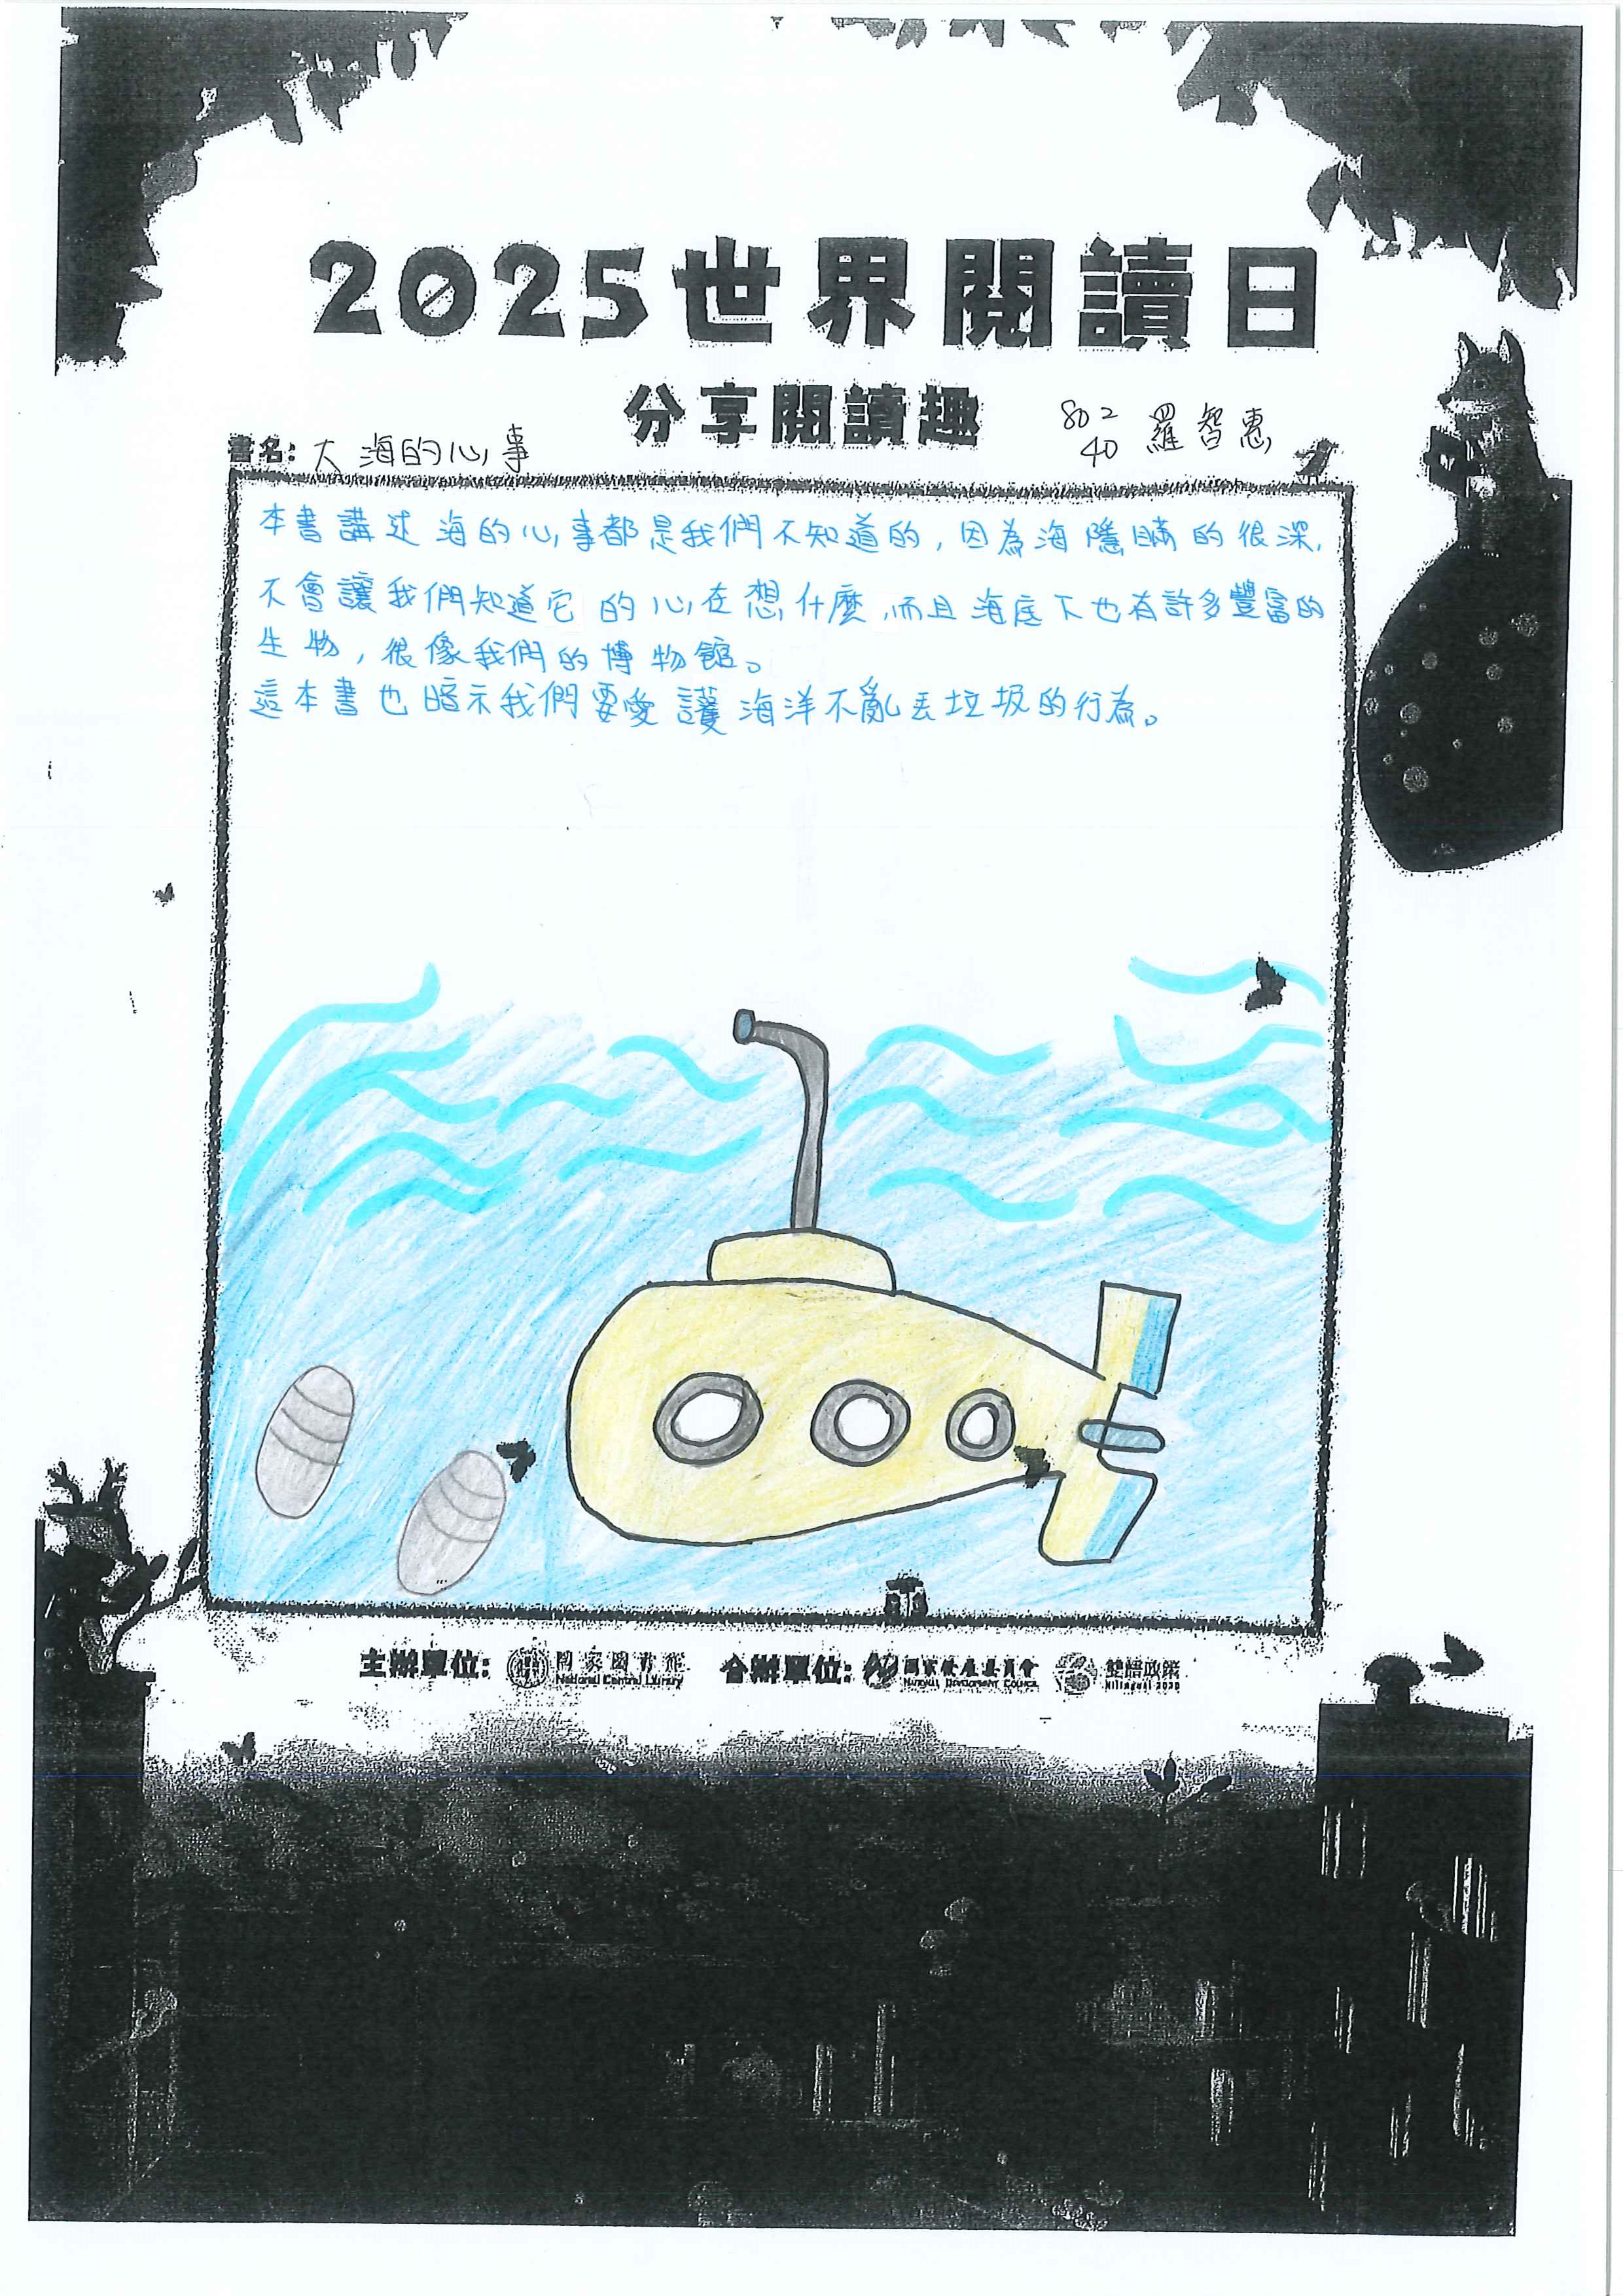 2025世界閱讀日
分享閱讀趣
802
40 羅智惠
書名: 大海的心事
本書講述海的心事都是我們不知道的,因為海隱瞞的很深,
不會讓我們知道它的心在想什麼,而且海底下也有許多豐富的
生物,很像我們的博物館。
這本書也暗示我們要愛護海洋不亂丟垃圾的行為。
主辦單位: 國家圖書館 National Central Library 合辦單位: 國家發展委員會 National Development Council 雙語政策 Bilingual 2030